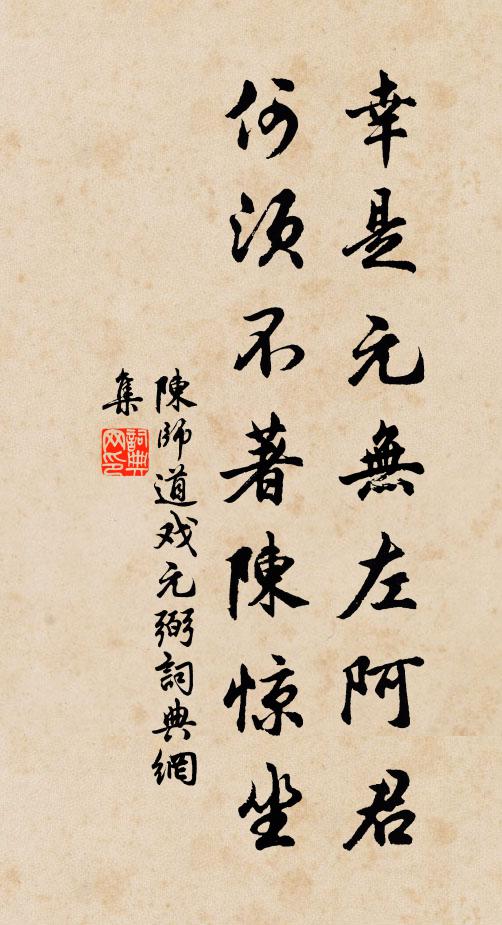 幸是元無左阿君
何須不著陳惊坐
陳師道戏元弼詞典網
集
詞典网印